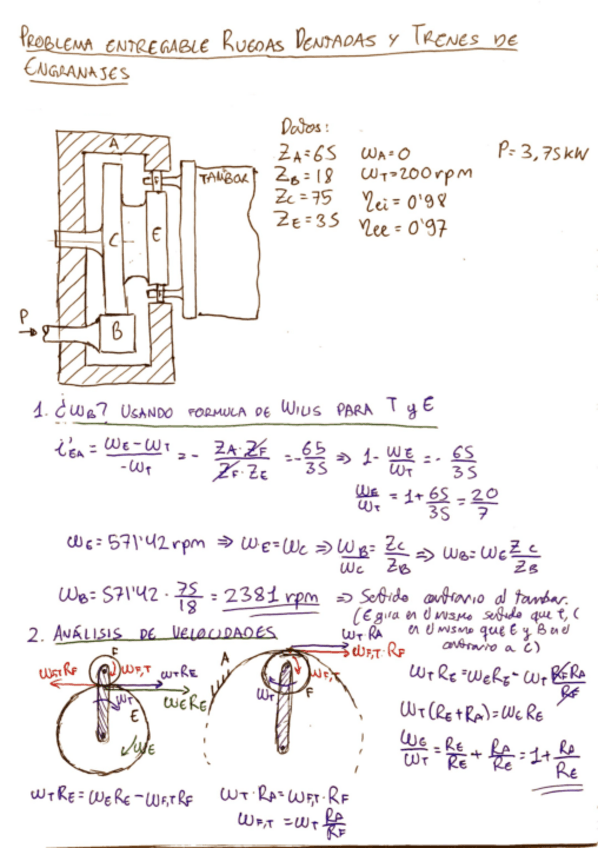 PROBLEMA ENTREGABLE RUEDAS DENTADAS Y TRENES DE
ENGRANAJES
Datos:
Z_A=65 ω_A=0 P=3,75kW
Z_B=18 ω_T=200rpm
Z_C=75 η_ei=0'98
Z_E=35 η_ee=0'97
A
TAMBOR
C
E
P
B
1. ¿ω_B? USANDO FORMULA DE WILIS PARA T y E
i'_EA = (ω_E-ω_T)/(-ω_T) = - (Z_A·Z_F)/(Z_F·Z_E) = -65/35 ⇒ 1-ω_E/ω_T = -65/35
ω_E/ω_T = 1+65/35 = 20/7
ω_E=571'42rpm ⇒ ω_E=ω_C ⇒ ω_B/ω_C = Z_C/Z_B ⇒ ω_B=ω_E Z_C/Z_B
ω_B=571'42·75/18=2381rpm ⇒ Sentido contrario al tambor.
(E gira en el mismo sentido que T, C
en el mismo que E y B en el
contrario a C)
2. ANÁLISIS DE VELOCIDADES
ω_T R_A
ω_F,T·R_F
F
A
ω_F,T R_F
ω_F,T
ω_T R_E
ω_E R_E
ω_T
E
ω_E
ω_F,T
ω_T
F
ω_T R_E=ω_E R_E-ω_T (R_F R_A)/R_F
ω_T(R_E+R_A)=ω_E R_E
ω_E/ω_T = R_E/R_E + R_A/R_E = 1+R_A/R_E
ω_T R_E=ω_E R_E-ω_F,T R_F
ω_T·R_A=ω_F,T·R_F
ω_F,T=ω_T R_A/R_F